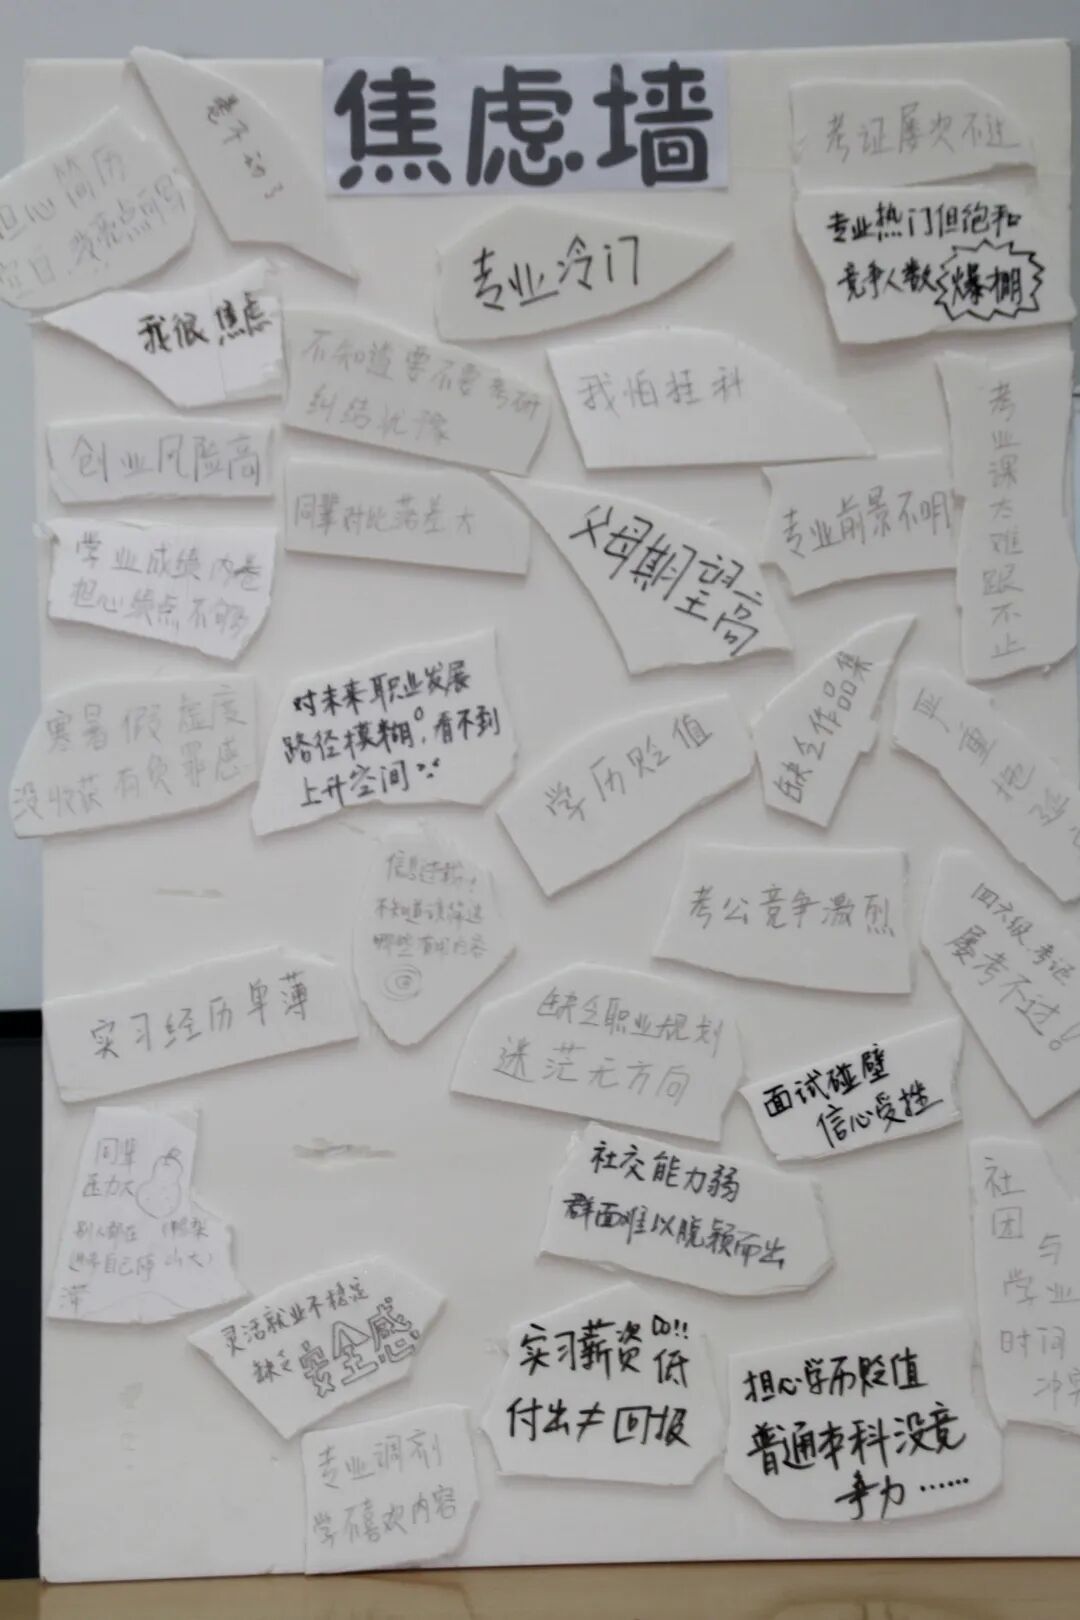 焦虑墙
考证屡次不过
担心简历
空白,没亮点可写
专业热门但饱和
竞争人数爆棚
专业冷门
我很焦虑
不知道要不要考研
纠结犹豫
我怕挂科
专业课太难跟不上
创业风险高
同辈对比落差大
父母期望高
专业前景不明
学业成绩内卷
担心绩点不够
寒暑假虚度
没收获有负罪感
对未来职业发展
路径模糊。看不到
上升空间
学历贬值
缺乏作品集
严重拖
信息
不知道该筛选
哪些有
考公竞争激烈
四六级、考证
屡考不过!
实习经历单薄
缺乏职业规划
迷茫无方向
面试碰壁
信心受挫
同辈
压力大
别人都在
进步自己停
滞
(鸭梨
山大)
社交能力弱
群面难以脱颖而出
社团与
学业
时间
冲突
灵活就业不稳定
缺乏安全感
实习薪资低!!
付出≠回报
担心学历贬值
普通本科没竞
争力……
专业调剂
学不喜欢内容